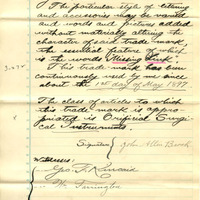 The particular style of lettering
and accessories may be varied
and words and pictures added
without materially altering the
character of said trade mark,
the essential feature of which
is the words "Missing Link."
This trade mark has been
continuously used by me since
about the 1st day of May 1897.
The class of articles to which
this trade mark is appro-
priated is Surgical
Instruments.
Signature John Allen
Witnesses:
Geo. F. Kincaid